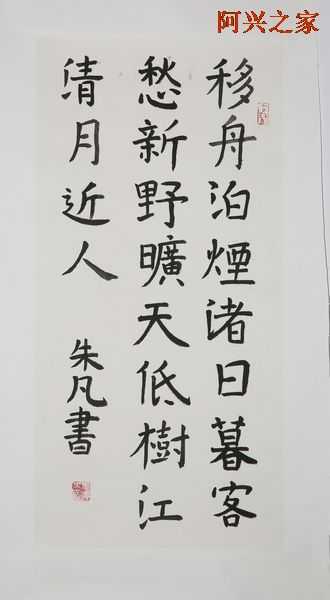 阿兴之家
移舟泊煙渚日暮客
愁新野曠天低樹江
清月近人
朱凡書